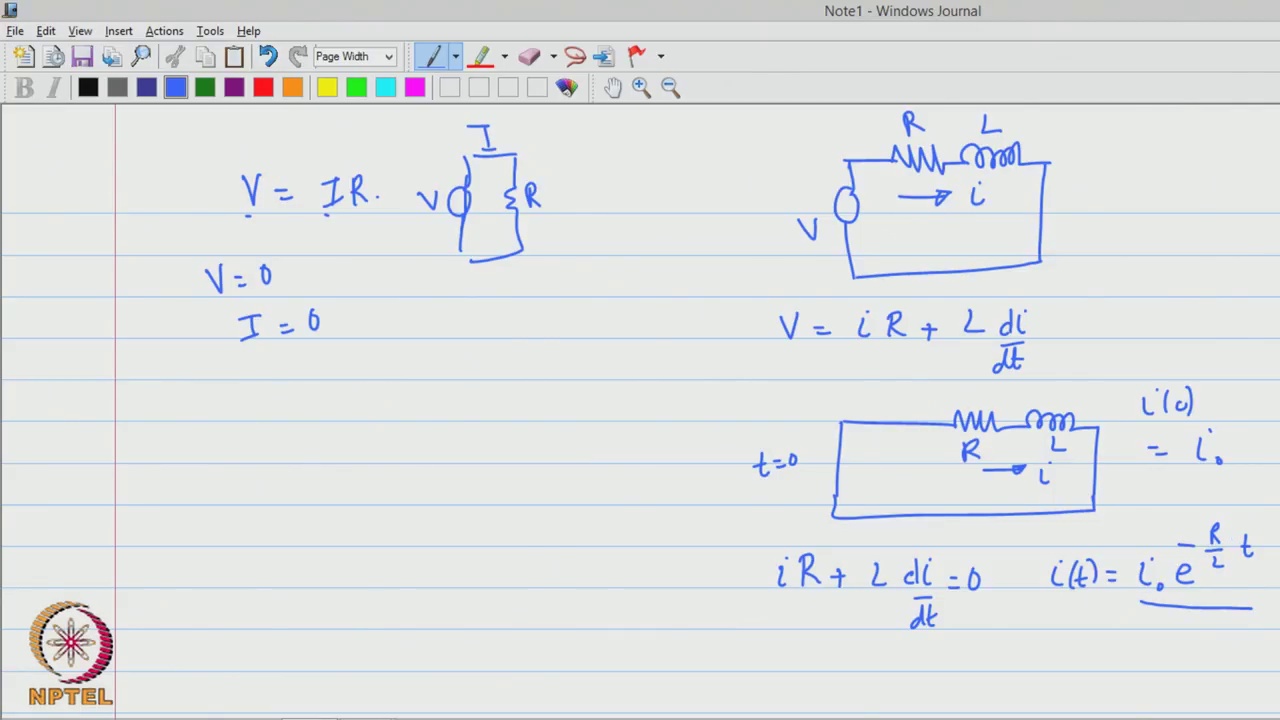 Note1 - Windows Journal
File Edit View Insert Actions Tools Help
Page Width
B I
I
V = IR.
V
R
V = 0
I = 0
R L
i
V
V = iR + L di/dt
t=0
R L
i
i(0)
= i₀
iR + L di/dt = 0
i(t) = i₀ e^(-R/L t)
NPTEL